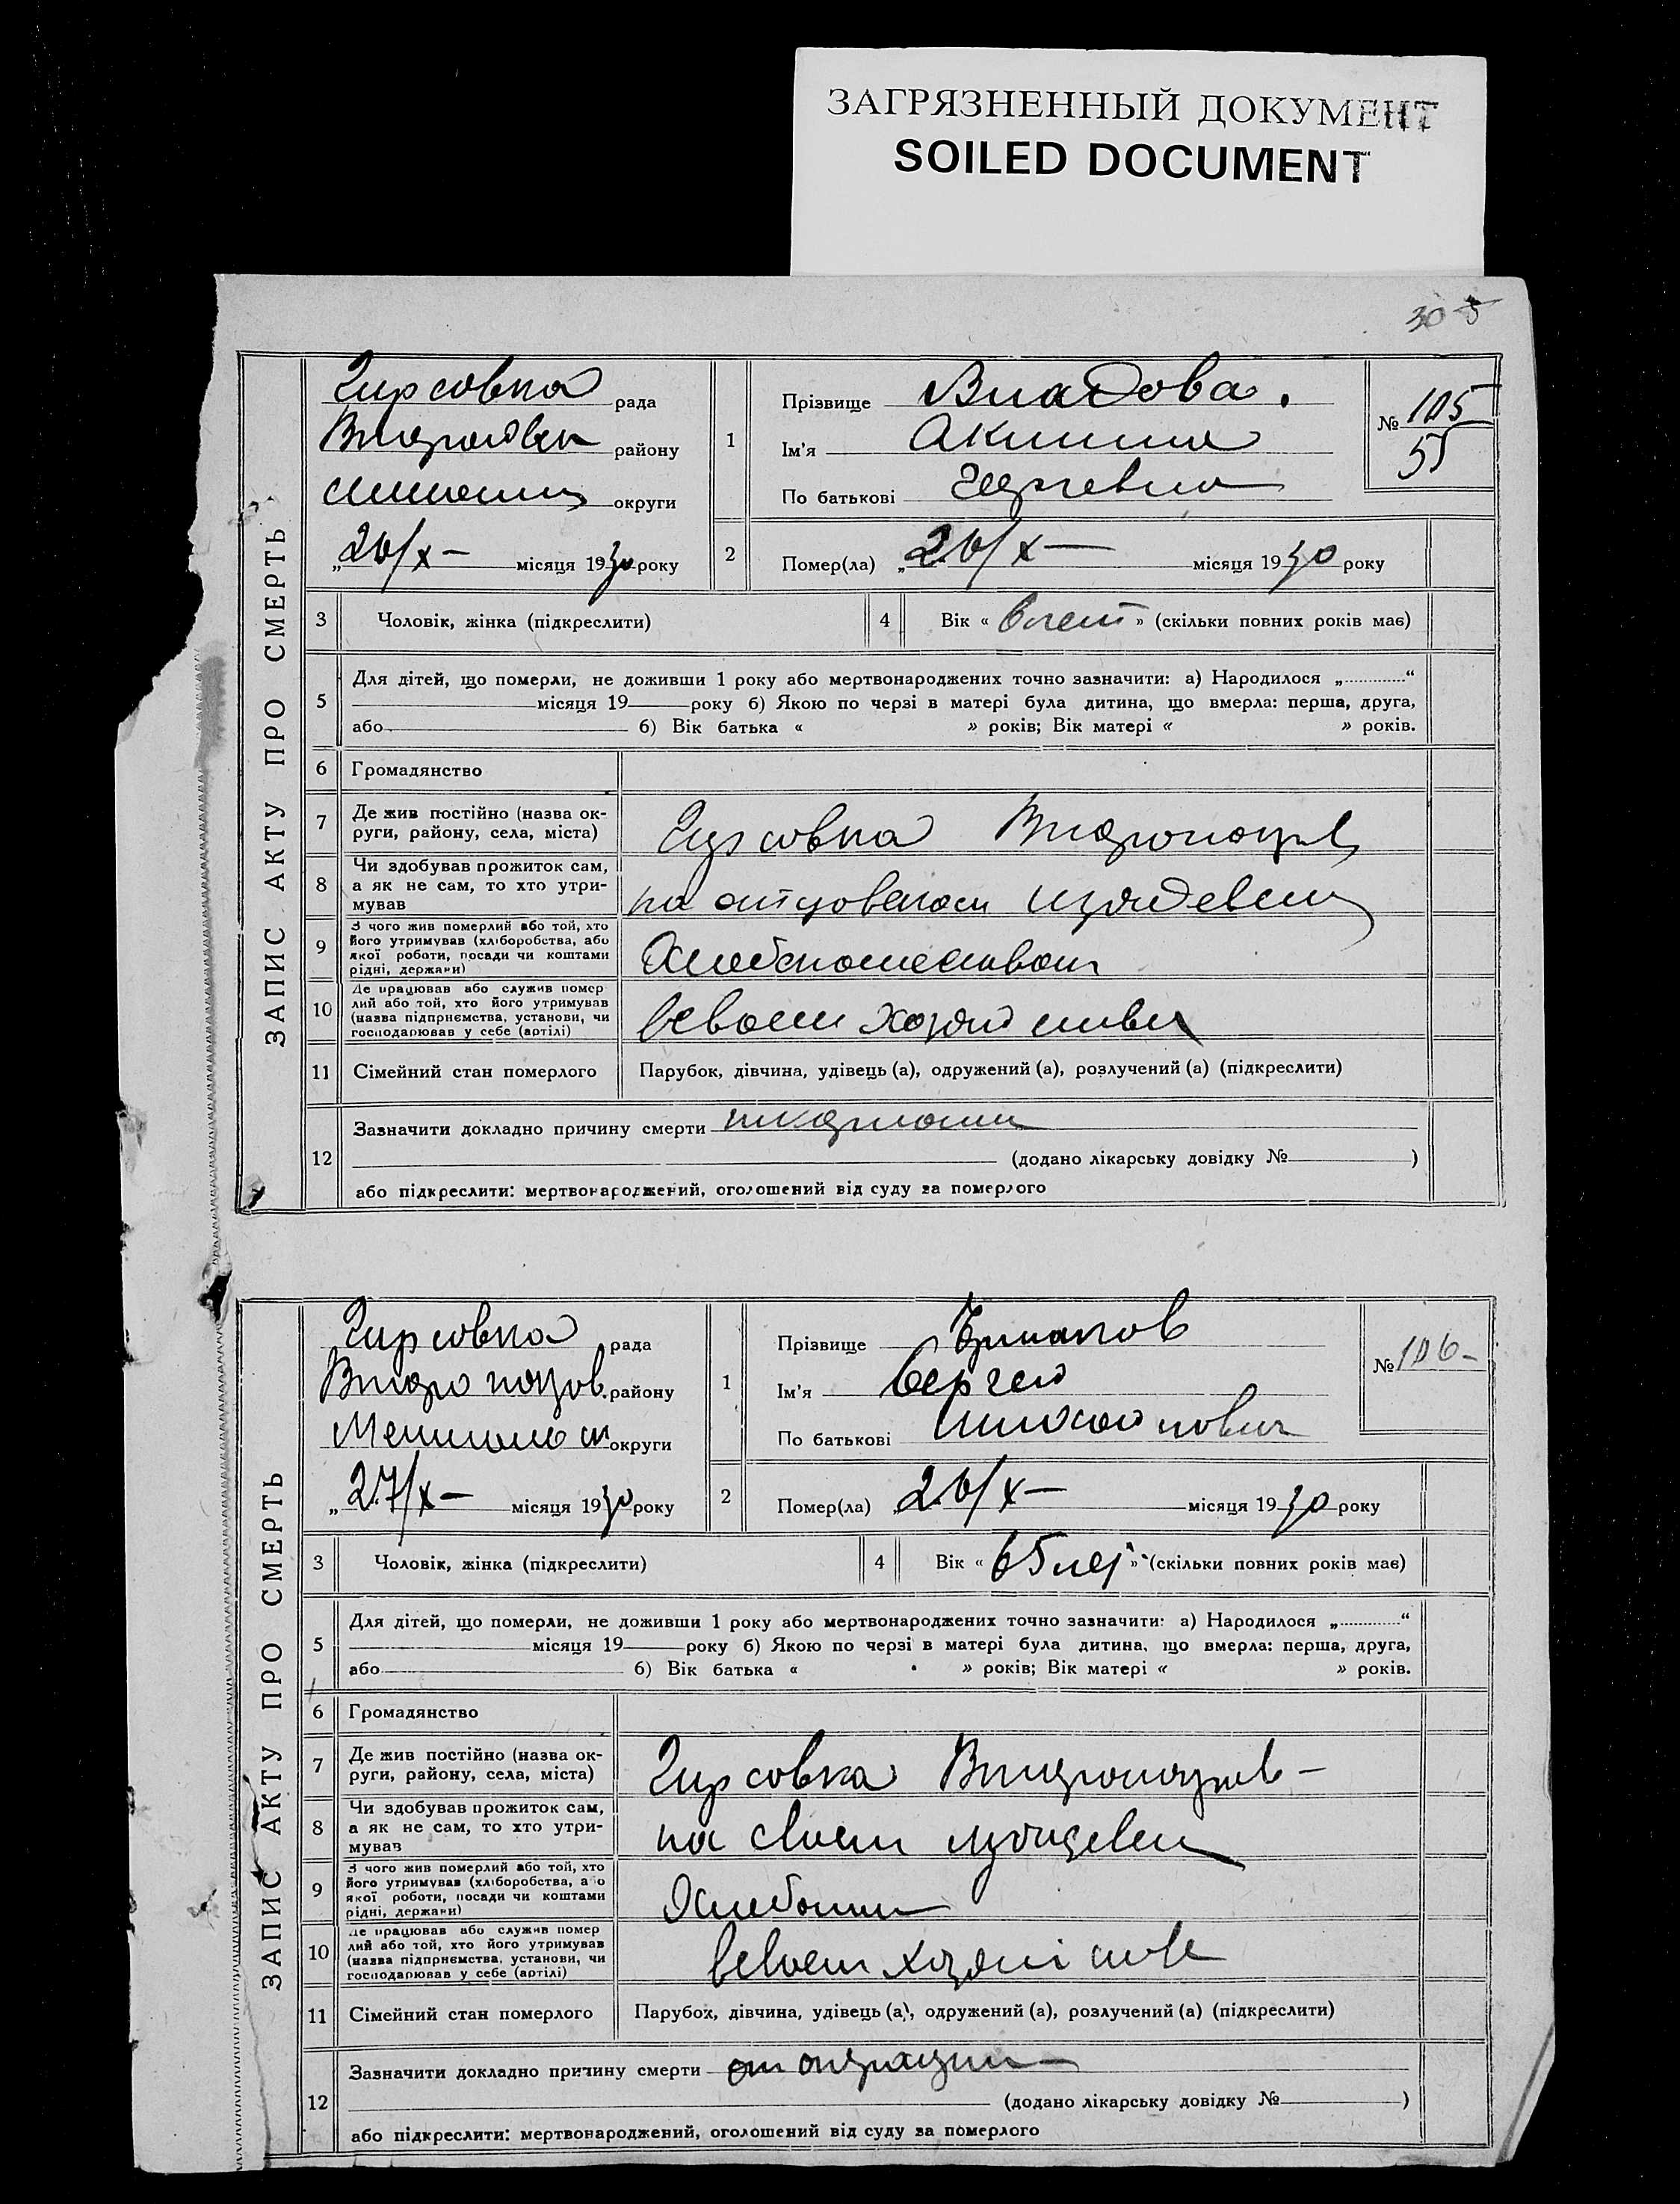 ЗАГРЯЗНЕННЫЙ ДОКУМЕНТ
SOILED DOCUMENT
305
ЗАПИС АКТУ ПРО СМЕРТЬ
Гирсовка рада
району
округи
„26/X — місяця 1930 року
1
Прізвище Владова.
Ім'я
По батькові Георгевна
№ 105
55
2
Помер(ла) „26/X — місяця 1930 року
3
Чоловік, жінка (підкреслити)
4
Вік « 6 лет » (скільки повних років має)
5
Для дітей, що померли, не доживши 1 року або мертвонароджених точно зазначити: а) Народилося „ “
місяця 19 року б) Якою по черзі в матері була дитина, що вмерла: перша, друга,
або б) Вік батька « » років; Вік матері « » років.
6
Громадянство
7
Де жив постійно (назва ок-
руги, району, села, міста)
Гирсовка
8
Чи здобував прожиток сам,
а як не сам, то хто утри-
мував
на
9
З чого жив померлий або той, хто
його утримував (хліборобства, або
якої роботи, посади чи коштами
рідні, держави)
10
Де працював або служив помер
лий або той, хто його утримував
(назва підприємства, установи, чи
господарював у себе (артілі)
11
Сімейний стан померлого
Парубок, дівчина, удівець (а), одружений (а), розлучений (а) (підкреслити)
12
Зазначити докладно причину смерти
(додано лікарську довідку № )
або підкреслити: мертвонароджений, оголошений від суду за померлого
ЗАПИС АКТУ ПРО СМЕРТЬ
Гирсовка рада
району
округи
„27/X — місяця 1930 року
1
Прізвище Ермаков
Ім'я Сергей
По батькові
№ 106 -
2
Помер(ла) „26/X — місяця 1930 року
3
Чоловік, жінка (підкреслити)
4
Вік « 65 лет » (скільки повних років має)
5
Для дітей, що померли, не доживши 1 року або мертвонароджених точно зазначити: а) Народилося „ “
місяця 19 року б) Якою по черзі в матері була дитина, що вмерла: перша, друга,
або б) Вік батька « » років; Вік матері « » років.
6
Громадянство
7
Де жив постійно (назва ок-
руги, району, села, міста)
Гирсовка
8
Чи здобував прожиток сам,
а як не сам, то хто утри-
мував
на своем
9
З чого жив померлий або той, хто
його утримував (хліборобства, або
якої роботи, посади чи коштами
рідні, держави)
10
Де працював або служив помер
лий або той, хто його утримував
(назва підприємства, установи, чи
господарював у себе (артілі)
11
Сімейний стан померлого
Парубок, дівчина, удівець (а), одружений (а), розлучений (а) (підкреслити)
12
Зазначити докладно причину смерти от операции
(додано лікарську довідку № )
або підкреслити: мертвонароджений, оголошений від суду за померлого